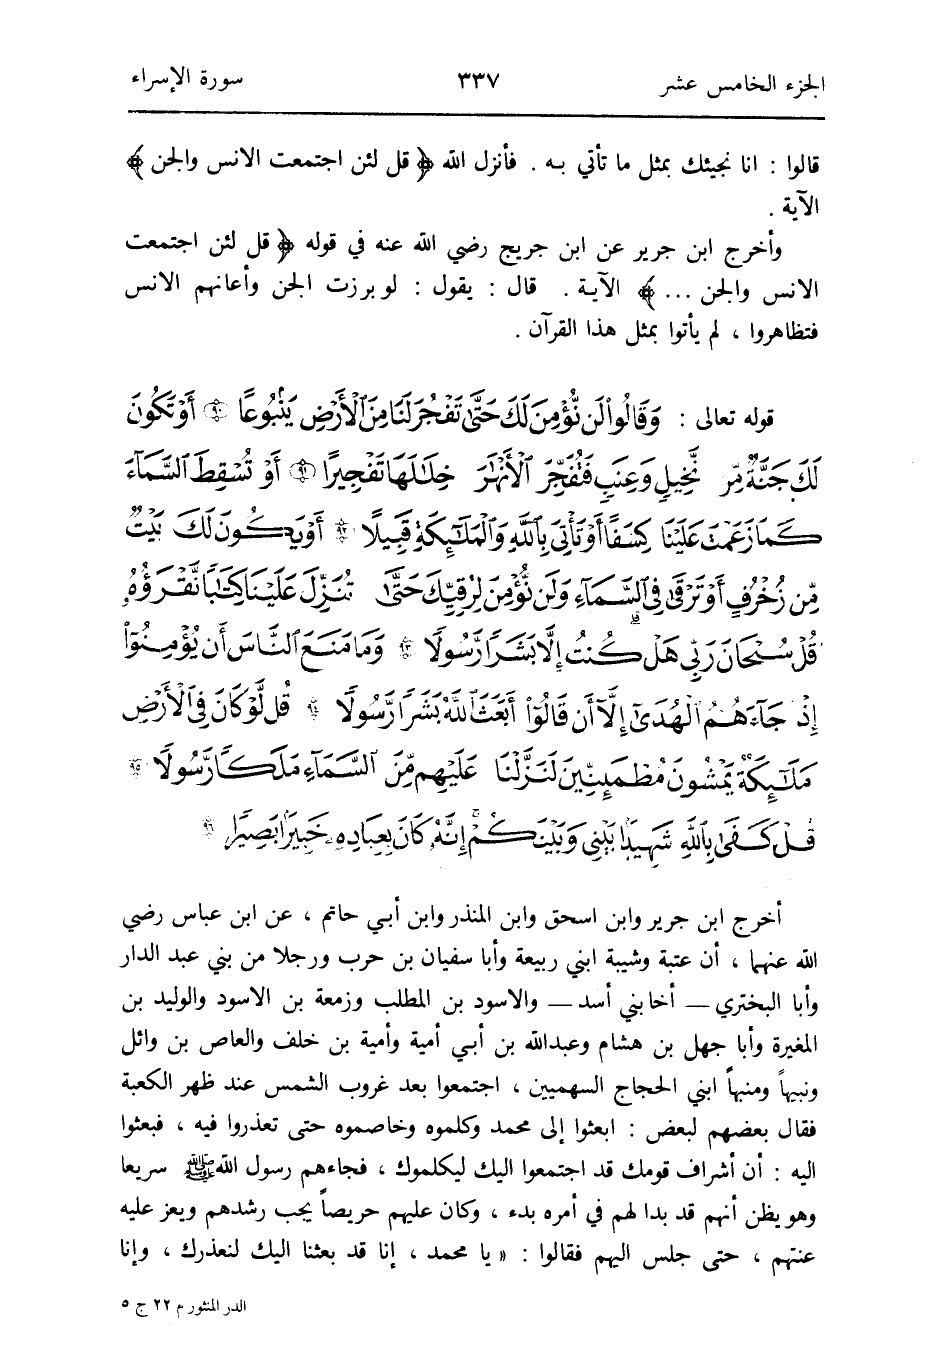 الجزء الخامس عشر ٣٣٧ سورة الإسراء
قالوا : انا نجيئك بمثل ما تأتي به . فأنزل الله ﴿ قل لئن اجتمعت الانس والجن ﴾
الآية .
وأخرج ابن جرير عن ابن جريج رضي الله عنه في قوله ﴿ قل لئن اجتمعت
الانس والجن ... ﴾ الآية . قال : يقول : لو برزت الجن وأعانهم الانس
فتظاهروا ، لم يأتوا بمثل هذا القرآن .
قوله تعالى : وَقَالُوا۟ لَن نُّؤْمِنَ لَكَ حَتَّىٰ تَفْجُرَ لَنَا مِنَ ٱلْأَرْضِ يَنۢبُوعًا ٩٠ أَوْ تَكُونَ
لَكَ جَنَّةٌ مِّن نَّخِيلٍ وَعِنَبٍ فَتُفَجِّرَ ٱلْأَنْهَٰرَ خِلَٰلَهَا تَفْجِيرًا ٩١ أَوْ تُسْقِطَ ٱلسَّمَآءَ
كَمَا زَعَمْتَ عَلَيْنَا كِسَفًا أَوْ تَأْتِىَ بِٱللَّهِ وَٱلْمَلَٰٓئِكَةِ قَبِيلًا ٩٢ أَوْ يَكُونَ لَكَ بَيْتٌ
مِّن زُخْرُفٍ أَوْ تَرْقَىٰ فِى ٱلسَّمَآءِ وَلَن نُّؤْمِنَ لِرُقِيِّكَ حَتَّىٰ تُنَزِّلَ عَلَيْنَا كِتَٰبًا نَّقْرَؤُهُۥ
قُلْ سُبْحَانَ رَبِّى هَلْ كُنتُ إِلَّا بَشَرًا رَّسُولًا ٩٣ وَمَا مَنَعَ ٱلنَّاسَ أَن يُؤْمِنُوٓا۟
إِذْ جَآءَهُمُ ٱلْهُدَىٰٓ إِلَّآ أَن قَالُوٓا۟ أَبَعَثَ ٱللَّهُ بَشَرًا رَّسُولًا ٩٤ قُل لَّوْ كَانَ فِى ٱلْأَرْضِ
مَلَٰٓئِكَةٌ يَمْشُونَ مُطْمَئِنِّينَ لَنَزَّلْنَا عَلَيْهِم مِّنَ ٱلسَّمَآءِ مَلَكًا رَّسُولًا ٩٥
قُلْ كَفَىٰ بِٱللَّهِ شَهِيدًۢا بَيْنِى وَبَيْنَكُمْ إِنَّهُۥ كَانَ بِعِبَادِهِۦ خَبِيرًۢا بَصِيرًا ٩٦
أخرج ابن جرير وابن اسحق وابن المنذر وابن أبي حاتم ، عن ابن عباس رضي
الله عنهما ، أن عتبة وشيبة ابني ربيعة وأبا سفيان بن حرب ورجلا من بني عبد الدار
وأبا البختري — أخا بني أسد — والاسود بن المطلب وزمعة بن الاسود والوليد بن
المغيرة وأبا جهل بن هشام وعبدالله بن أبي أمية وأمية بن خلف والعاص بن وائل
ونبيهاً ومنبهاً ابني الحجاج السهميين ، اجتمعوا بعد غروب الشمس عند ظهر الكعبة
فقال بعضهم لبعض : ابعثوا إلى محمد وكلموه وخاصموه حتى تعذروا فيه ، فبعثوا
اليه : أن أشراف قومك قد اجتمعوا اليك ليكلموك ، فجاءهم رسول الله ﷺ سريعا
وهو يظن أنهم قد بدا لهم في أمره بدء ، وكان عليهم حريصاً يحب رشدهم ويعز عليه
عنتهم ، حتى جلس اليهم فقالوا : « يا محمد ، إنا قد بعثنا اليك لنعذرك ، وإنا
الدر المنثور م ٢٢ ج ٥